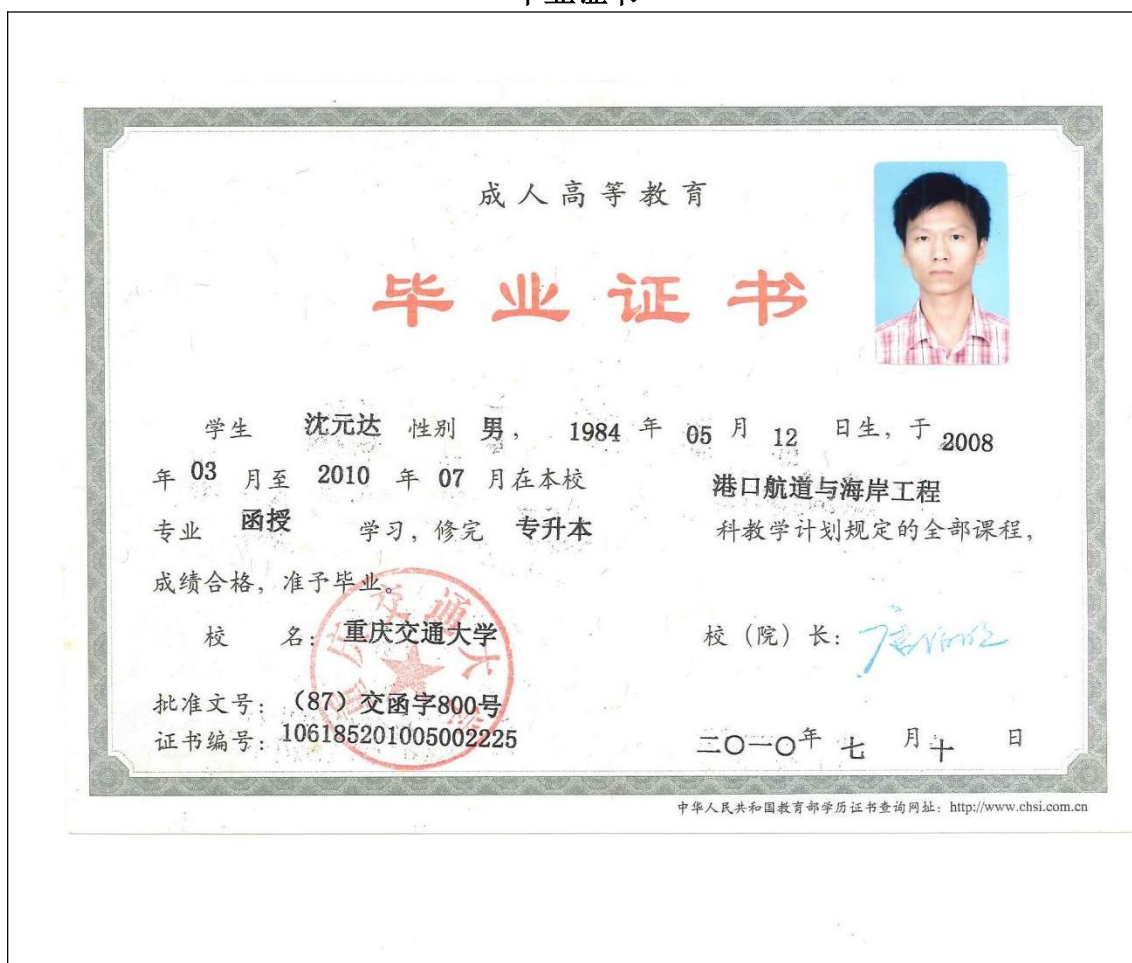 毕业证书
成人高等教育
毕业证书
学生 沈元达 性别 男, 1984 年 05 月 12 日生, 于 2008
年 03 月至 2010 年 07 月在本校 港口航道与海岸工程
专业 函授 学习, 修完 专升本 科教学计划规定的全部课程,
成绩合格, 准予毕业。
校 名: 重庆交通大学 校(院)长:
批准文号: (87)交函字800号
证书编号: 106185201005002225 二〇一〇年 七 月 十 日
中华人民共和国教育部学历证书查询网址: http://www.chsi.com.cn
重庆交通大学